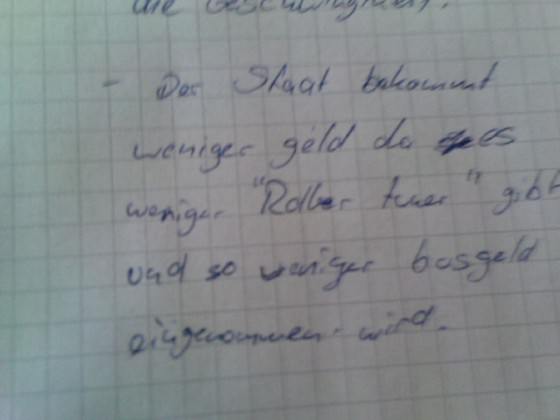 die Geschwindigkeit.
- Der Staat bekommt
weniger geld da es
weniger "Roller tuner" gibt
und so weniger busgeld
eingenommen wird.